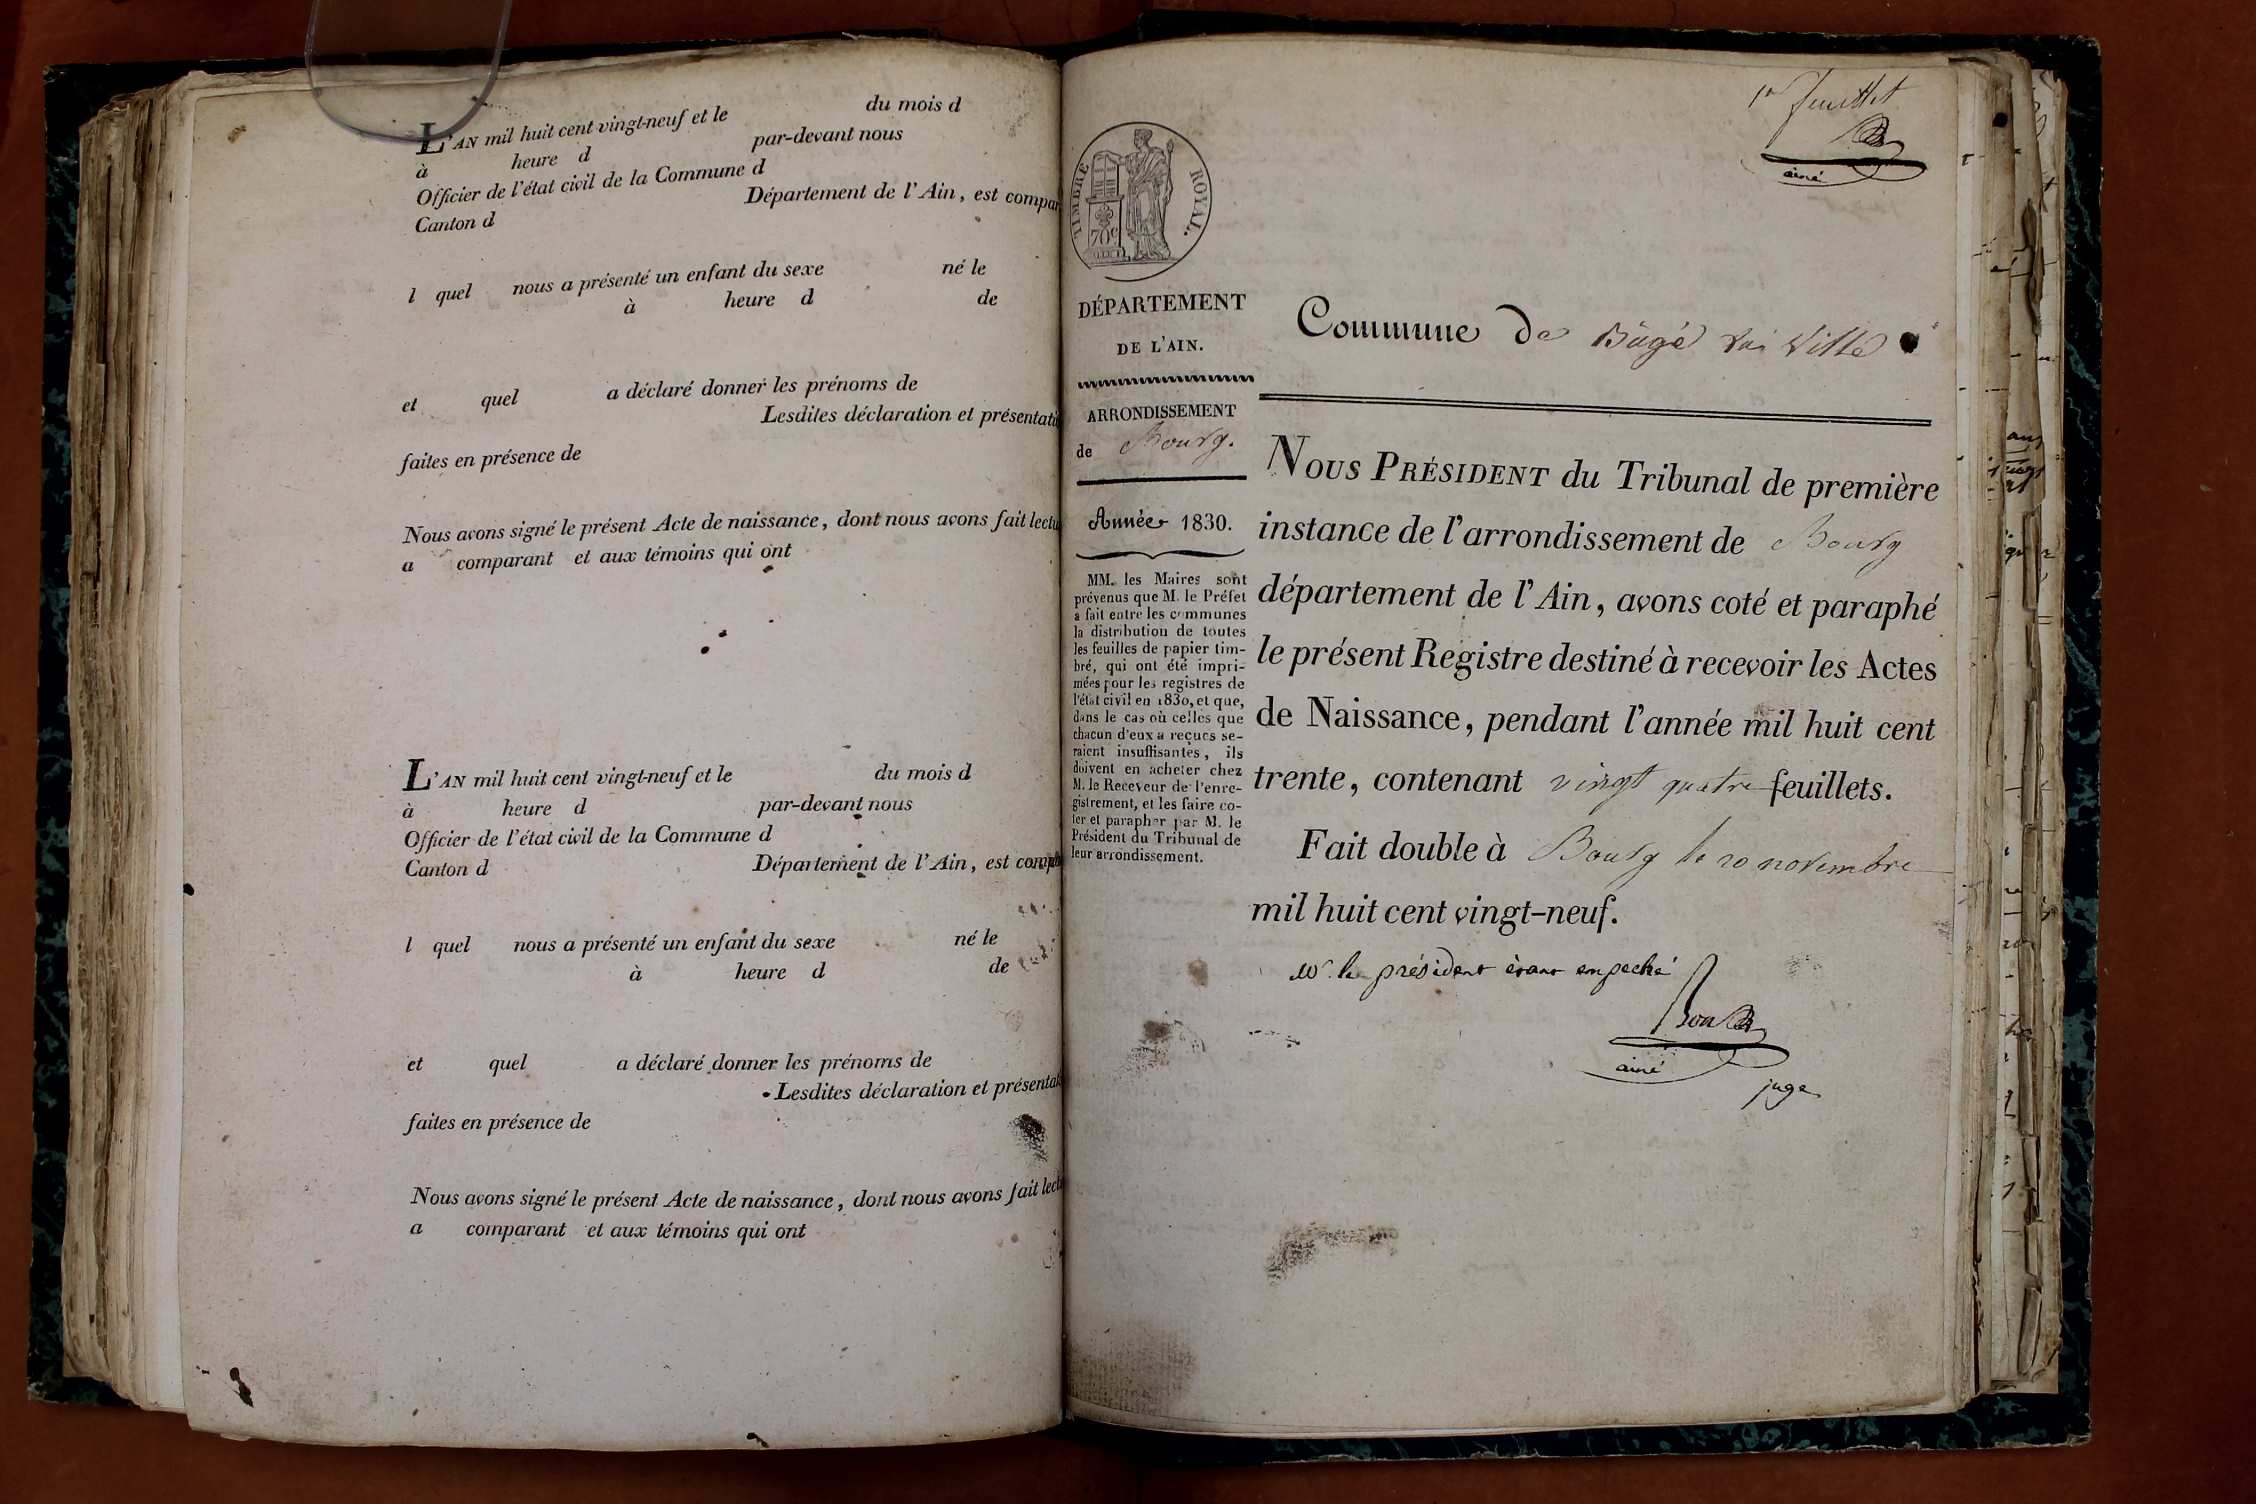 L'AN mil huit cent vingt-neuf et le du mois d
à heure d par-devant nous
Officier de l'état civil de la Commune d
Canton d Département de l'Ain, est compar
l quel nous a présenté un enfant du sexe né le
à heure d de
et quel a déclaré donner les prénoms de
Lesdites déclaration et présentati
faites en présence de
Nous avons signé le présent Acte de naissance, dont nous avons fait lectu
a comparant et aux témoins qui ont
L'AN mil huit cent vingt-neuf et le du mois d
à heure d par-devant nous
Officier de l'état civil de la Commune d
Canton d Département de l'Ain, est comp
l quel nous a présenté un enfant du sexe né le
à heure d de
et quel a déclaré donner les prénoms de
Lesdites déclaration et présentat
faites en présence de
Nous avons signé le présent Acte de naissance, dont nous avons fait lect
a comparant et aux témoins qui ont
1er feuillet
ainé
TIMBRE ROYAL.
70c
DÉPARTEMENT
DE L'AIN.
ARRONDISSEMENT
de Bourg.
Année 1830.
MM. les Maires sont
prévenus que M. le Préfet
a fait entre les communes
la distribution de toutes
les feuilles de papier tim-
bré, qui ont été impri-
mées pour les registres de
l'état civil en 1830, et que,
dans le cas où celles que
chacun d'eux a reçues se-
raient insuffisantes, ils
doivent en acheter chez
M. le Receveur de l'enre-
gistrement, et les faire co-
ter et parapher par M. le
Président du Tribunal de
leur arrondissement.
Commune de Bâgé la Ville
NOUS PRÉSIDENT du Tribunal de première
instance de l'arrondissement de Bourg
département de l'Ain, avons coté et paraphé
le présent Registre destiné à recevoir les Actes
de Naissance, pendant l'année mil huit cent
trente, contenant vingt quatre feuillets.
Fait double à Bourg le 20 novembre
mil huit cent vingt-neuf.
Mr. le président étant empeché
ainé
juge